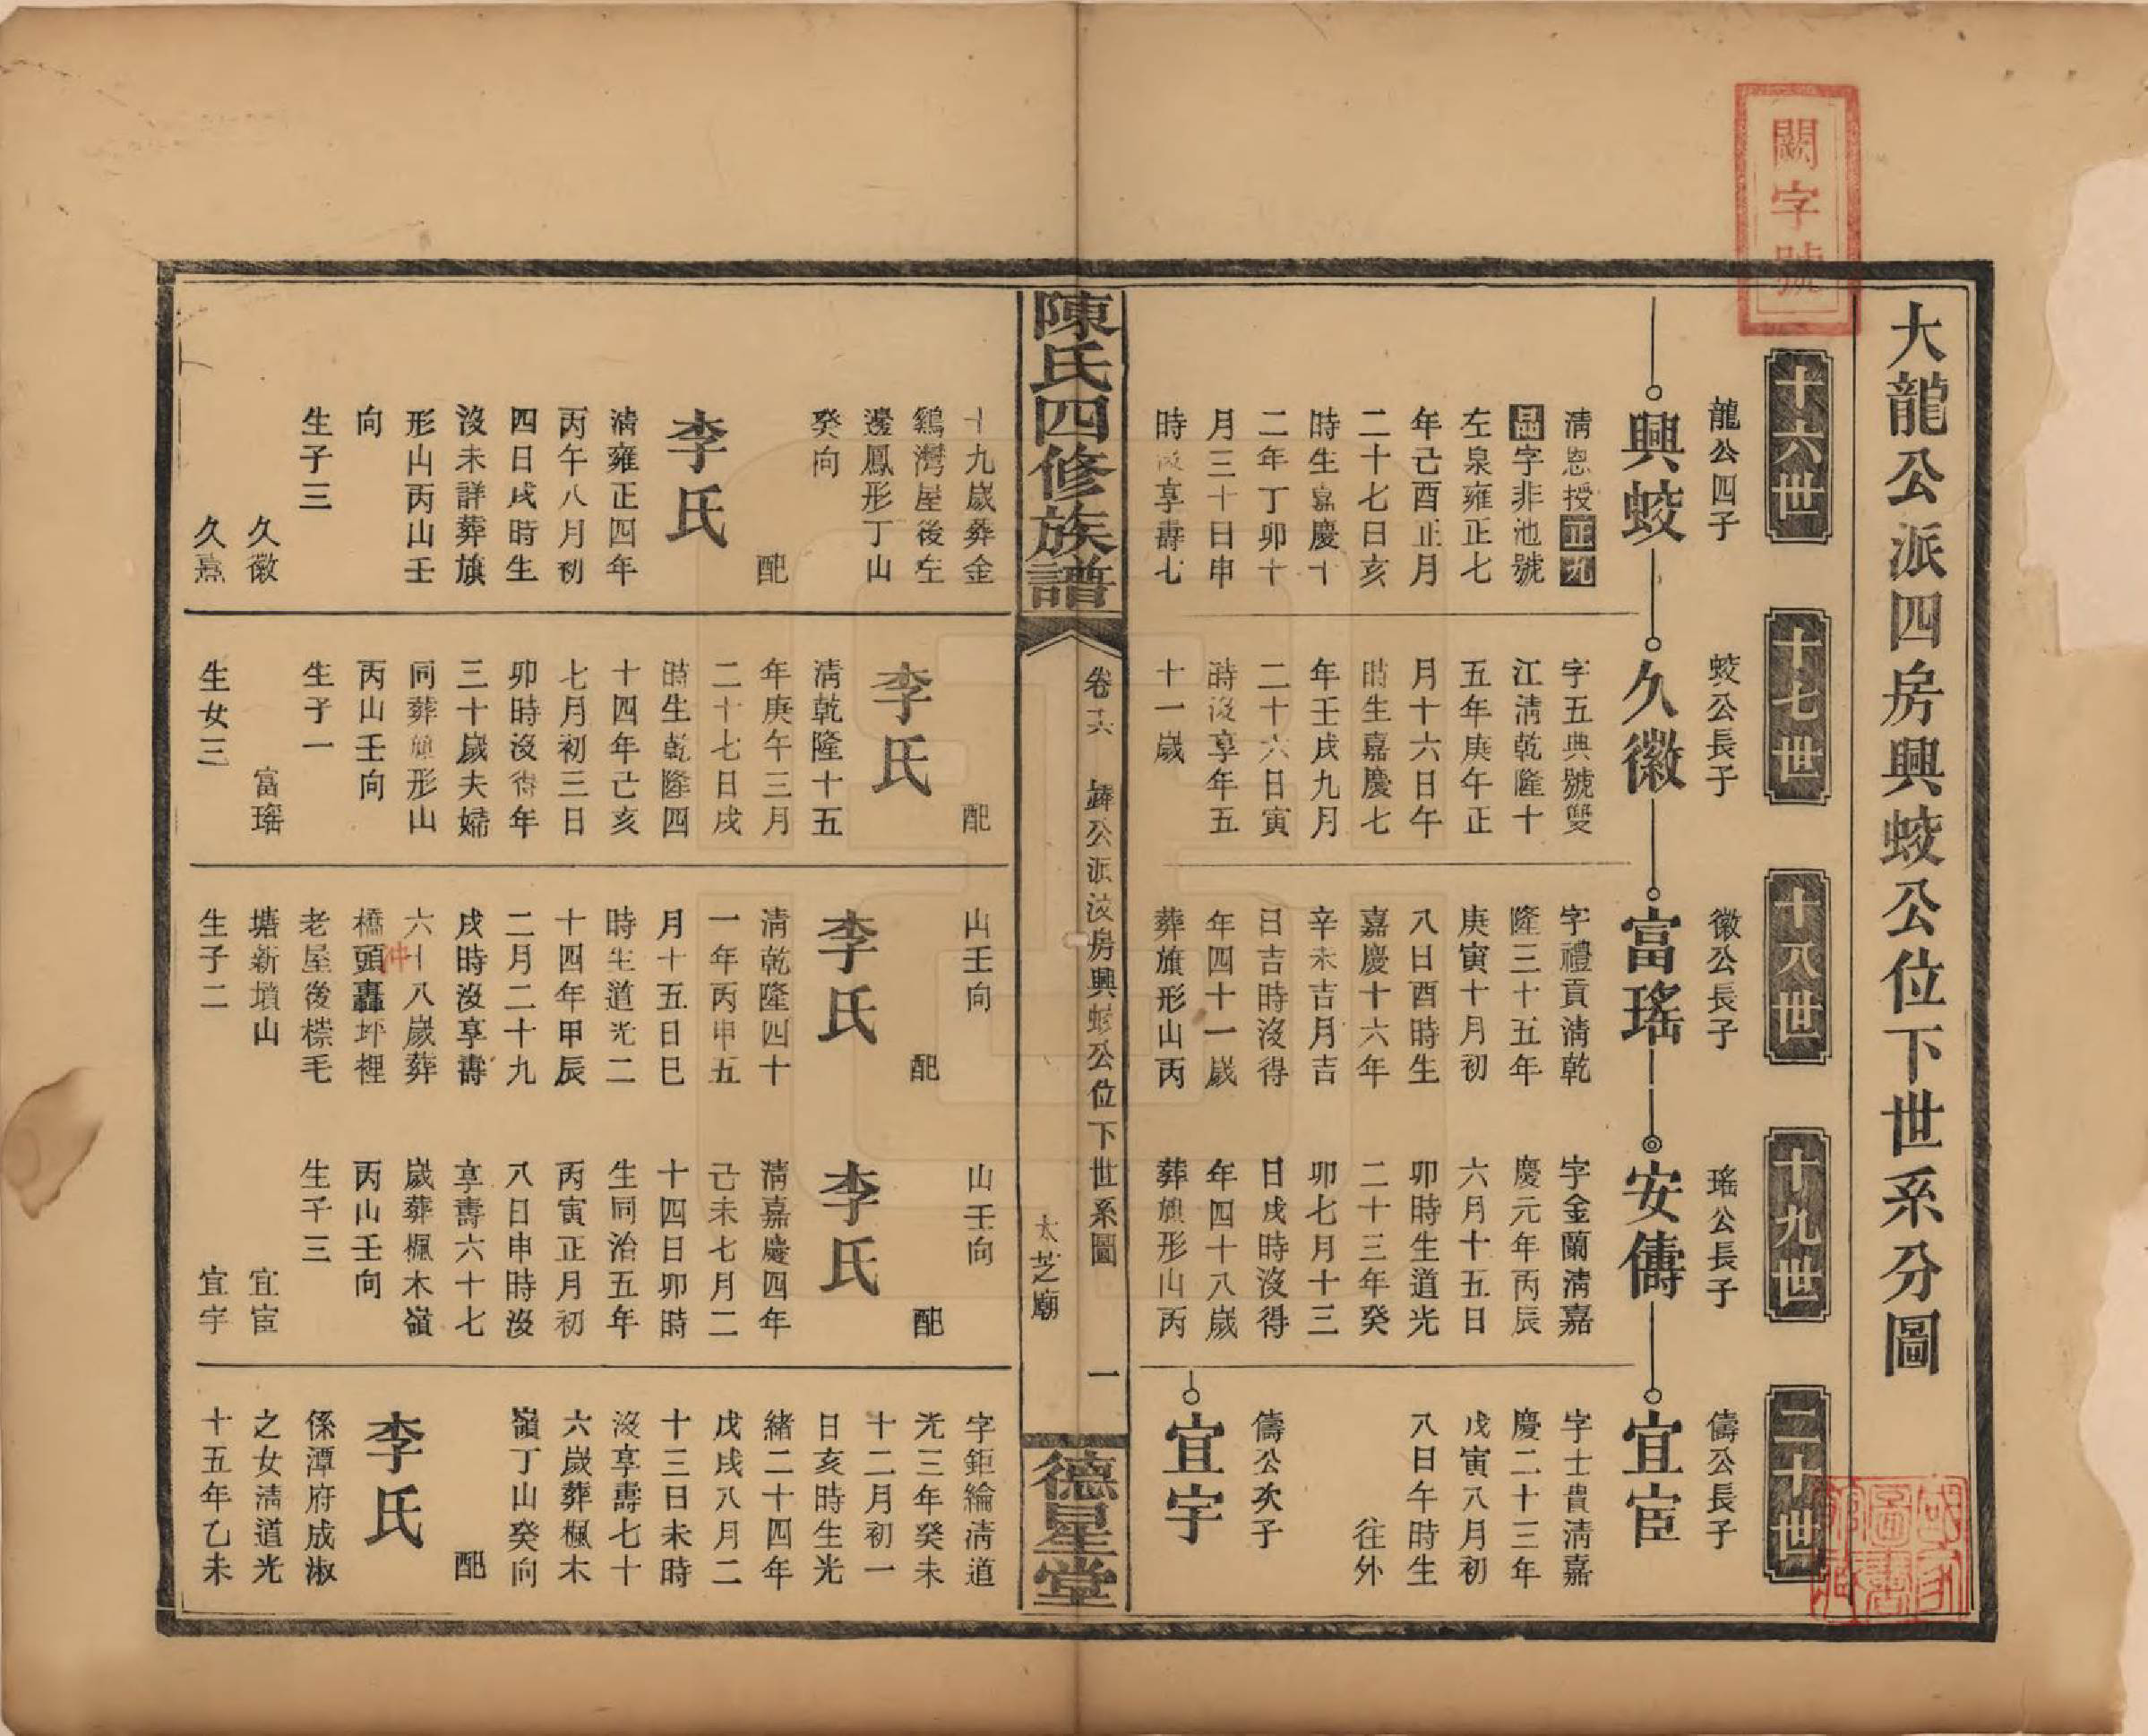 大龍公派四房興蛟公位下世系分圖
闕字號
十六世
龍公四子
興蛟
清恩授正九
品字非池號
左泉雍正七
年己酉正月
二十七日亥
時生嘉慶十
二年丁卯十
月三十日申
時没享壽七
十九歲葬金
鷄灣屋後左
邊鳳形丁山
癸向
配
李氏
清雍正四年
丙午八月初
四日戌時生
沒未詳葬旗
形山丙山壬
向
生子三
久徽
久熹
十七世
蛟公長子
久徽
字五典號雙
江清乾隆十
五年庚午正
月十六日午
時生嘉慶七
年壬戌九月
二十六日寅
時没享年五
十一歲
配
李氏
清乾隆十五
年庚午三月
二十七日戌
時生乾隆四
十四年己亥
七月初三日
卯時沒得年
三十歲夫婦
同葬旗形山
丙山壬向
生子一
富瑤
生女三
十八世
徽公長子
富瑤
字禮貢清乾
隆三十五年
庚寅十月初
八日酉時生
嘉慶十六年
辛未吉月吉
日吉時沒得
年四十一歲
葬旗形山丙
山壬向
配
李氏
清乾隆四十
一年丙申五
月十五日巳
時生道光二
十四年甲辰
二月二十九
戌時沒享壽
六十八歲葬
橋頭轟坪裡
冲
老屋後標毛
塘新墳山
生子二
十九世
瑤公長子
安儔
字金蘭清嘉
慶元年丙辰
六月十五日
卯時生道光
二十三年癸
卯七月十三
日戌時沒得
年四十八歲
葬旗形山丙
山壬向
配
李氏
清嘉慶四年
己未七月二
十四日卯時
生同治五年
丙寅正月初
八日申時沒
享壽六十七
歲葬楓木嶺
丙山壬向
生子三
宜宦
宜宇
二十世
儔公長子
宜宦
字士貴清嘉
慶二十三年
戊寅八月初
八日午時生
往外
儔公次子
宜宇
字鉅綸清道
光三年癸未
十二月初一
日亥時生光
緒二十四年
戊戌八月二
十三日未時
沒享壽七十
六歲葬楓木
嶺丁山癸向
配
李氏
係潭府成淑
之女清道光
十五年乙未
陳氏四修族譜
卷十六
公派汝房興蛟公位下世系圖
太芝廟
一
德星堂